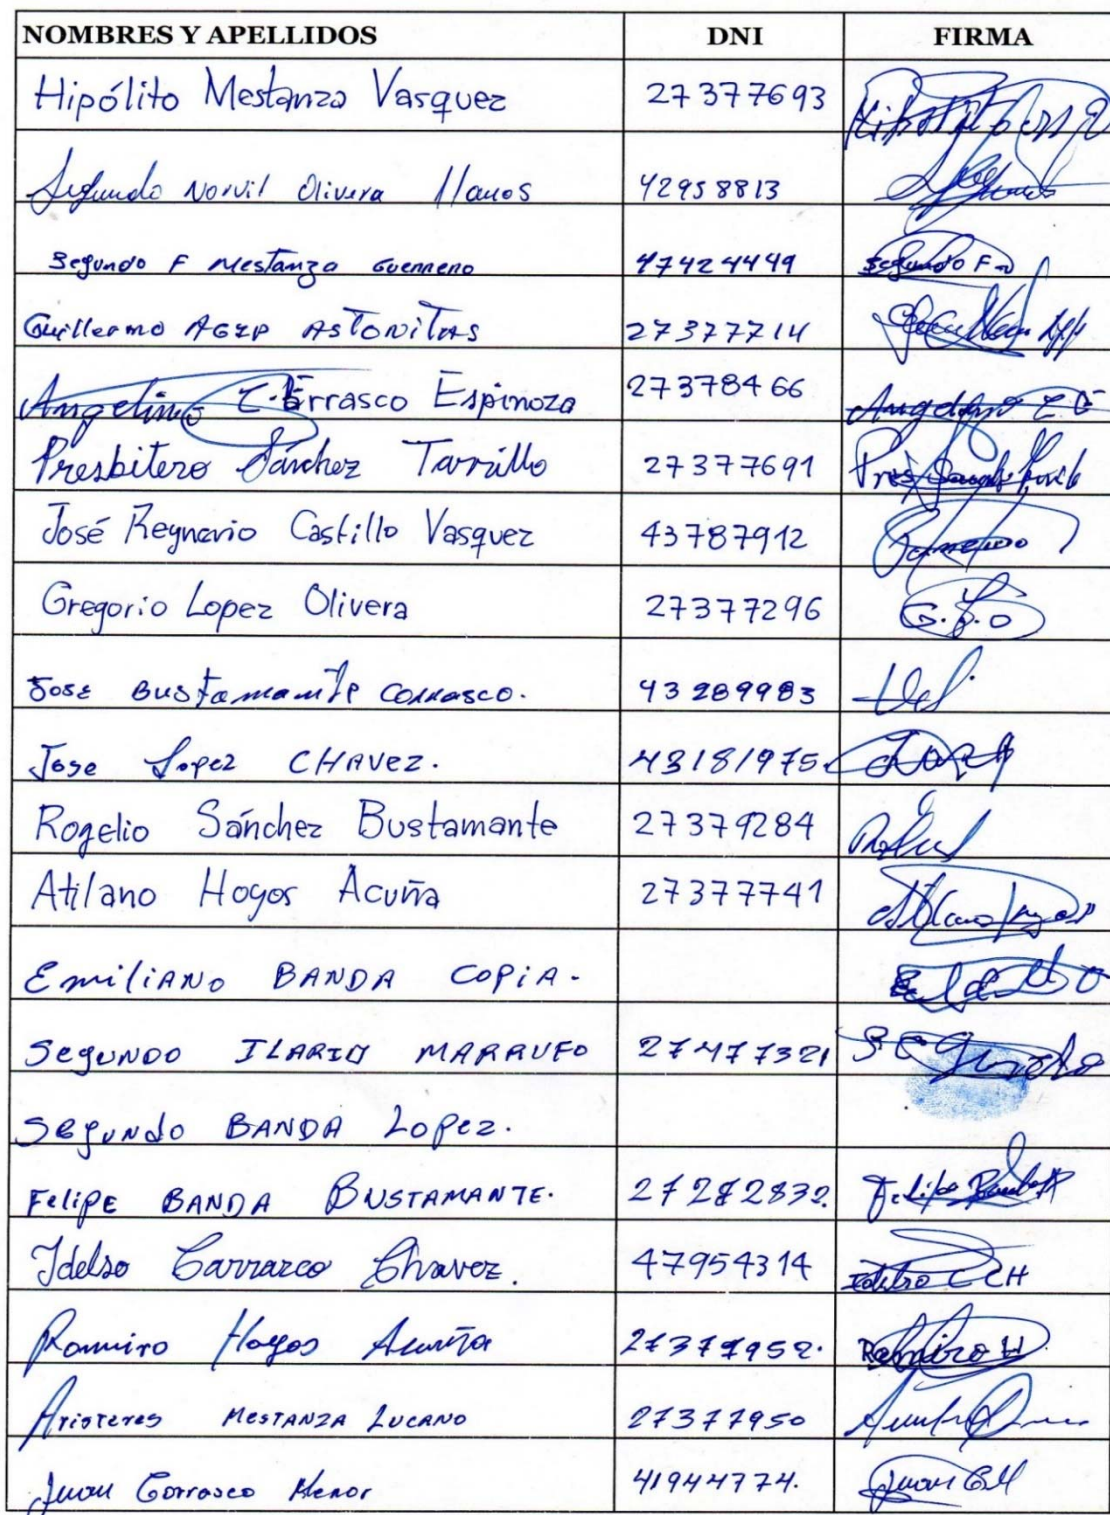 NOMBRES Y APELLIDOS DNI FIRMA
Hipólito Mestanza Vasquez 27377693
Segundo Norvil Olivera llanos 42958813
Segundo F Mestanza Guerrero 47424449 Segundo F
Guillermo AGIP ASTONITAS 27377714
Angelino Carrasco Espinoza 27378466 Angelino C E
Presbitero Sánchez Tarrillo 27377691
José Reynerio Castillo Vasquez 43787912
Gregorio Lopez Olivera 27377296 G.L.O
Jose Bustamante Carrasco. 43289983
Jose Lopez CHAVEZ. 43181975.
Rogelio Sánchez Bustamante 27379284
Atilano Hoyos Acuña 27377741
Emiliano BANDA COPIA.
Segundo ILARIO MARRUFO 27477321
Segundo BANDA Lopez.
Felipe BANDA BUSTAMANTE. 27282832.
Idelso Carrasco Chavez. 47954314 Idelso C CH
Ramiro Hoyos Acuña 27377952. Ramiro H
Aristeres MESTANZA LUCANO 27377950
Juan Carrasco Menor 41944774. Juan C M